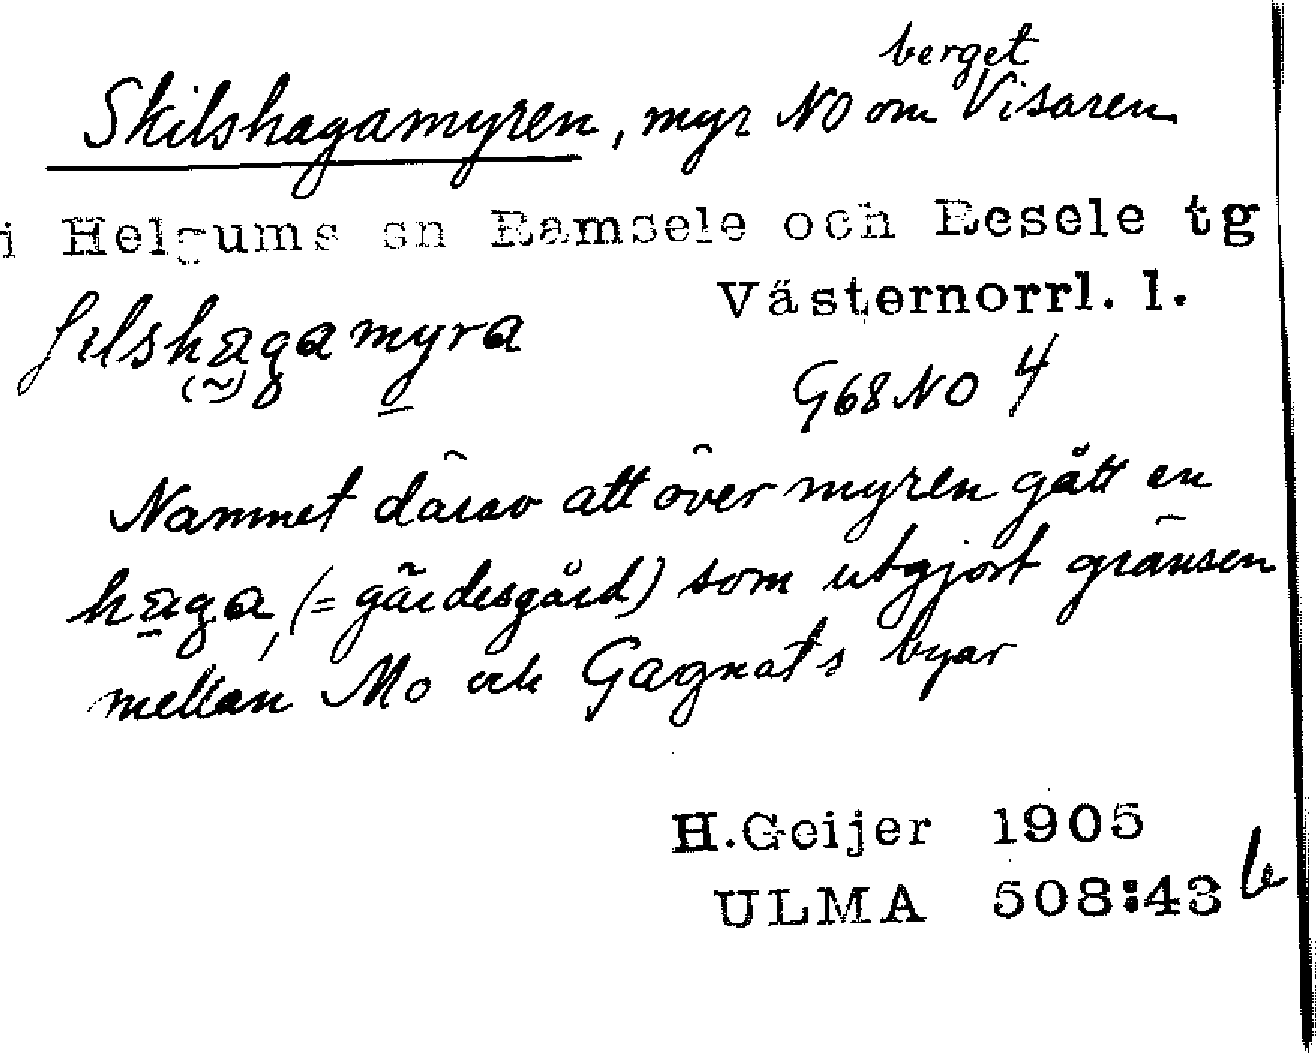 berget
Skilshagamyren, myr NO om Visaren
i Helgums sn Ramsele och Resele tg
Västernorrl. l.
ʃilshagamyra
G68NO 4
Namnet därav att över myren gått en
haga, (= gärdesgård) som utgjort gränsen
mellan Mo och Gagnäts byar
H.Geijer 1905
ULMA 508:43 b